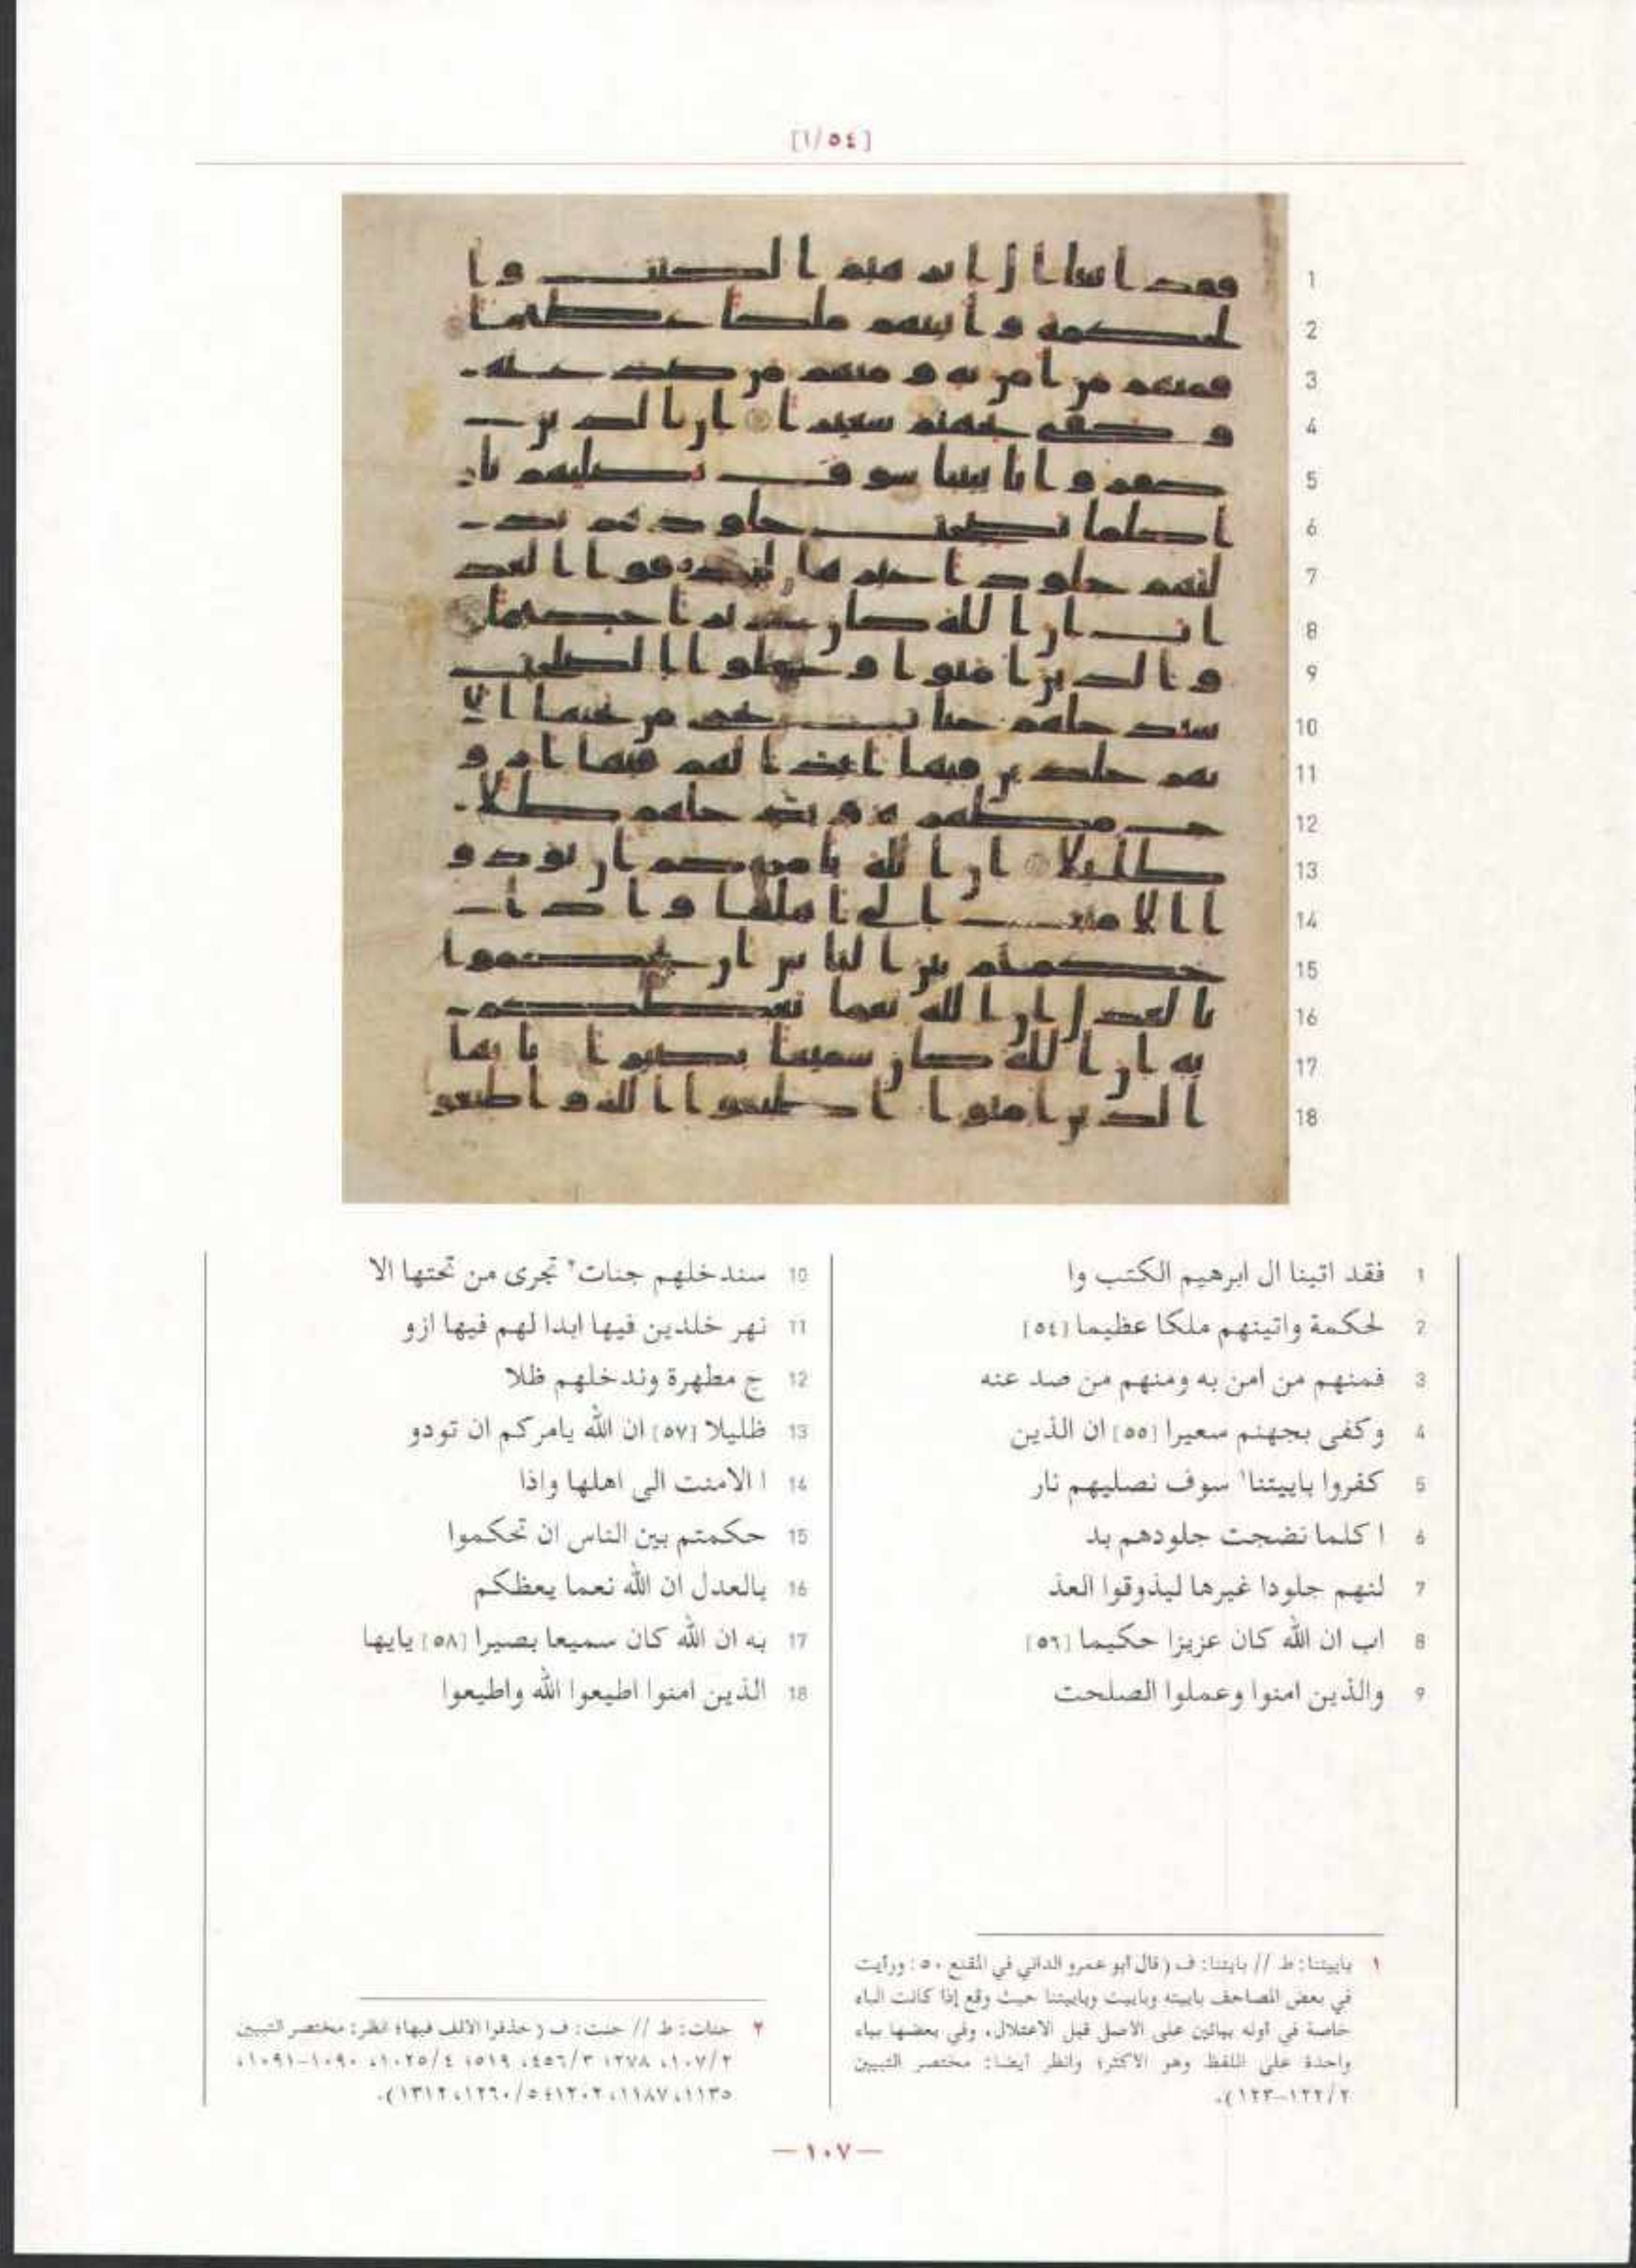 [٥٤/١]
1 فقد اتينا ال ابرهيم الكتب وا
2 لحكمة واتينهم ملكا عظيما [٥٤]
3 فمنهم من امن به ومنهم من صد عنه
4 وكفى بجهنم سعيرا [٥٥] ان الذين
5 كفروا باييتنا١ سوف نصليهم نار
6 ا كلما نضجت جلودهم بد
7 لنهم جلودا غيرها ليذوقوا العذ
8 اب ان الله كان عزيزا حكيما [٥٦]
9 والذين امنوا وعملوا الصلحت
10 سندخلهم جنات٢ تجرى من تحتها الا
11 نهر خلدين فيها ابدا لهم فيها ازو
12 ج مطهرة وندخلهم ظلا
13 ظليلا [٥٧] ان الله يامركم ان تودو
14 ا الامنت الى اهلها واذا
15 حكمتم بين الناس ان تحكموا
16 بالعدل ان الله نعما يعظكم
17 به ان الله كان سميعا بصيرا [٥٨] يايها
18 الذين امنوا اطيعوا الله واطيعوا
١ باييتنا: ط // بايتنا: ف (قال أبو عمرو الداني في المقنع ٥٠: ورأيت
في بعض المصاحف باييته وباييت وباييتنا حيث وقع إذا كانت الباء
خاصة في أوله بيائين على الاصل قبل الاعتلال، وفي بعضها بياء
واحدة على اللفظ وهو الأكثر؛ وانظر أيضا: مختصر التبيين
٢/١٢٢–١٢٣).
٢ جنات: ط // جنت: ف (حذفوا الالف فيها؛ انظر: مختصر التبيين
٢/١٠٧، ٢٧٨؛ ٣/٤٥٦، ٥١٩؛ ٤/١٠٢٥، ١٠٩٠–١٠٩١،
١١٣٥، ١١٨٧، ١٢٠٢؛ ٥/١٢٦٠، ١٣١٢).
— ١٠٧ —